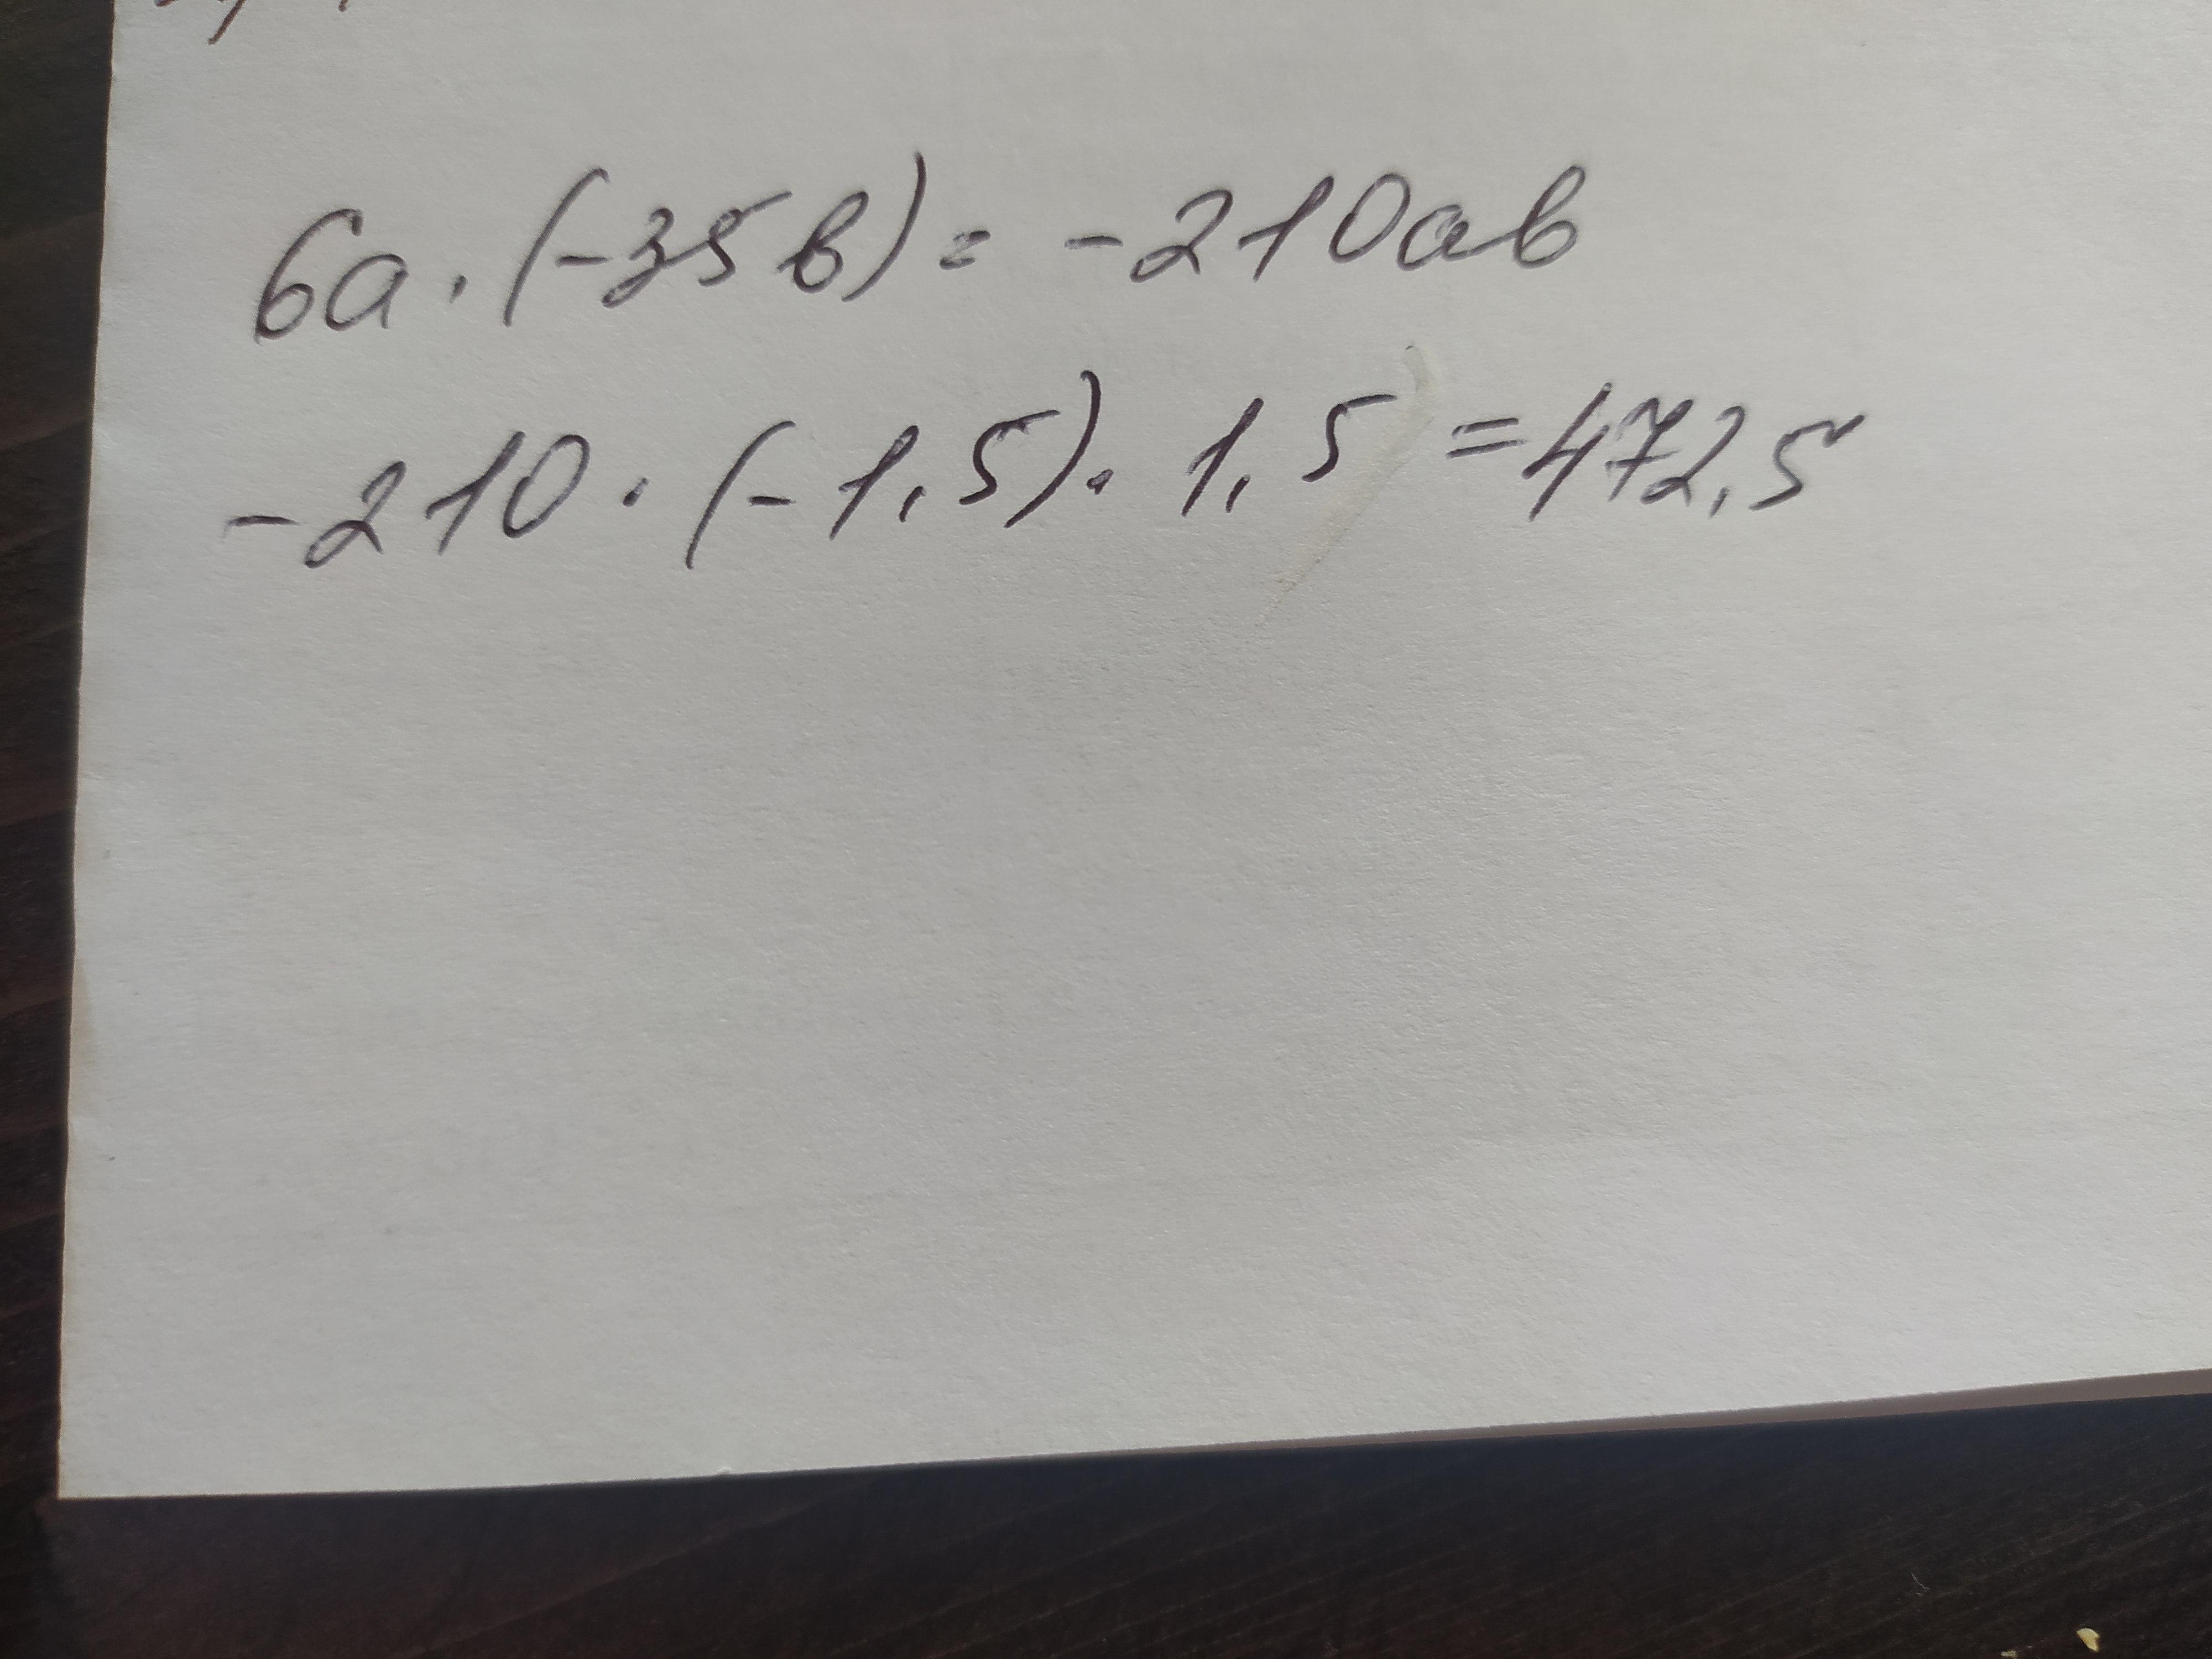 6a · (-35b) = -210ab
-210 · (-1,5) · 1,5 = 472,5